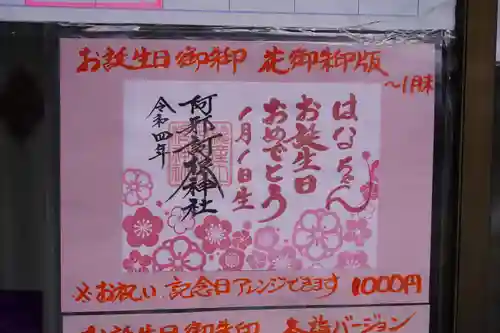 お誕生日御朱印 花御朱印版
～1月末
はなちゃん
お誕生日
おめでとう
1月1日生
阿邪訶根神社
令和四年
※お祝い、記念日アレンジできます 1000円
お誕生日御朱印 本誌バージョン